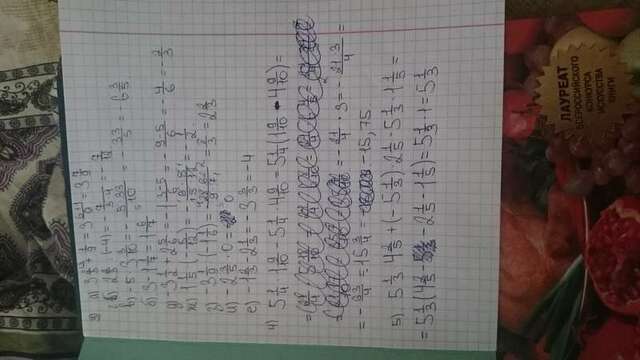 а) 3 2/3 + 1/9 = 3 6+1/9 = 3 7/9
в) -5 · 3 3/10 = - 5·33/10 = - 33/5 = -6 3/5
б) 3 - 1 1/7 = 1 6/7
д) -3 1/2 + 2 5/6 = -1 3-5/6 = - 9-5/6 = - 4/6 = - 2/3
и) -2 3/5 · 0 = 0
е) -1 2/3 - 2 1/3 = -3 3/3 = -4
4) 5 1/4 · 1 9/10 - 5 1/4 · 4 9/10 = 5 1/4 (1 9/10 - 4 9/10) =
= - 21/4 · 3 = - 21·3/4 =
= - 63/4 = 15 3/4 = -15,75
5) 5 1/3 · 4 2/5 + (-5 1/3) · 2 1/5 - 5 1/3 · 1 1/5 =
= 5 1/3 (4 2/5 - 2 1/5 - 1 1/5) = 5 1/3 · 1 = 5 1/3
ЛАУРЕАТ
ВСЕРОССИЙСКОГО
КОНКУРСА
ИСКУССТВА
КНИГИ